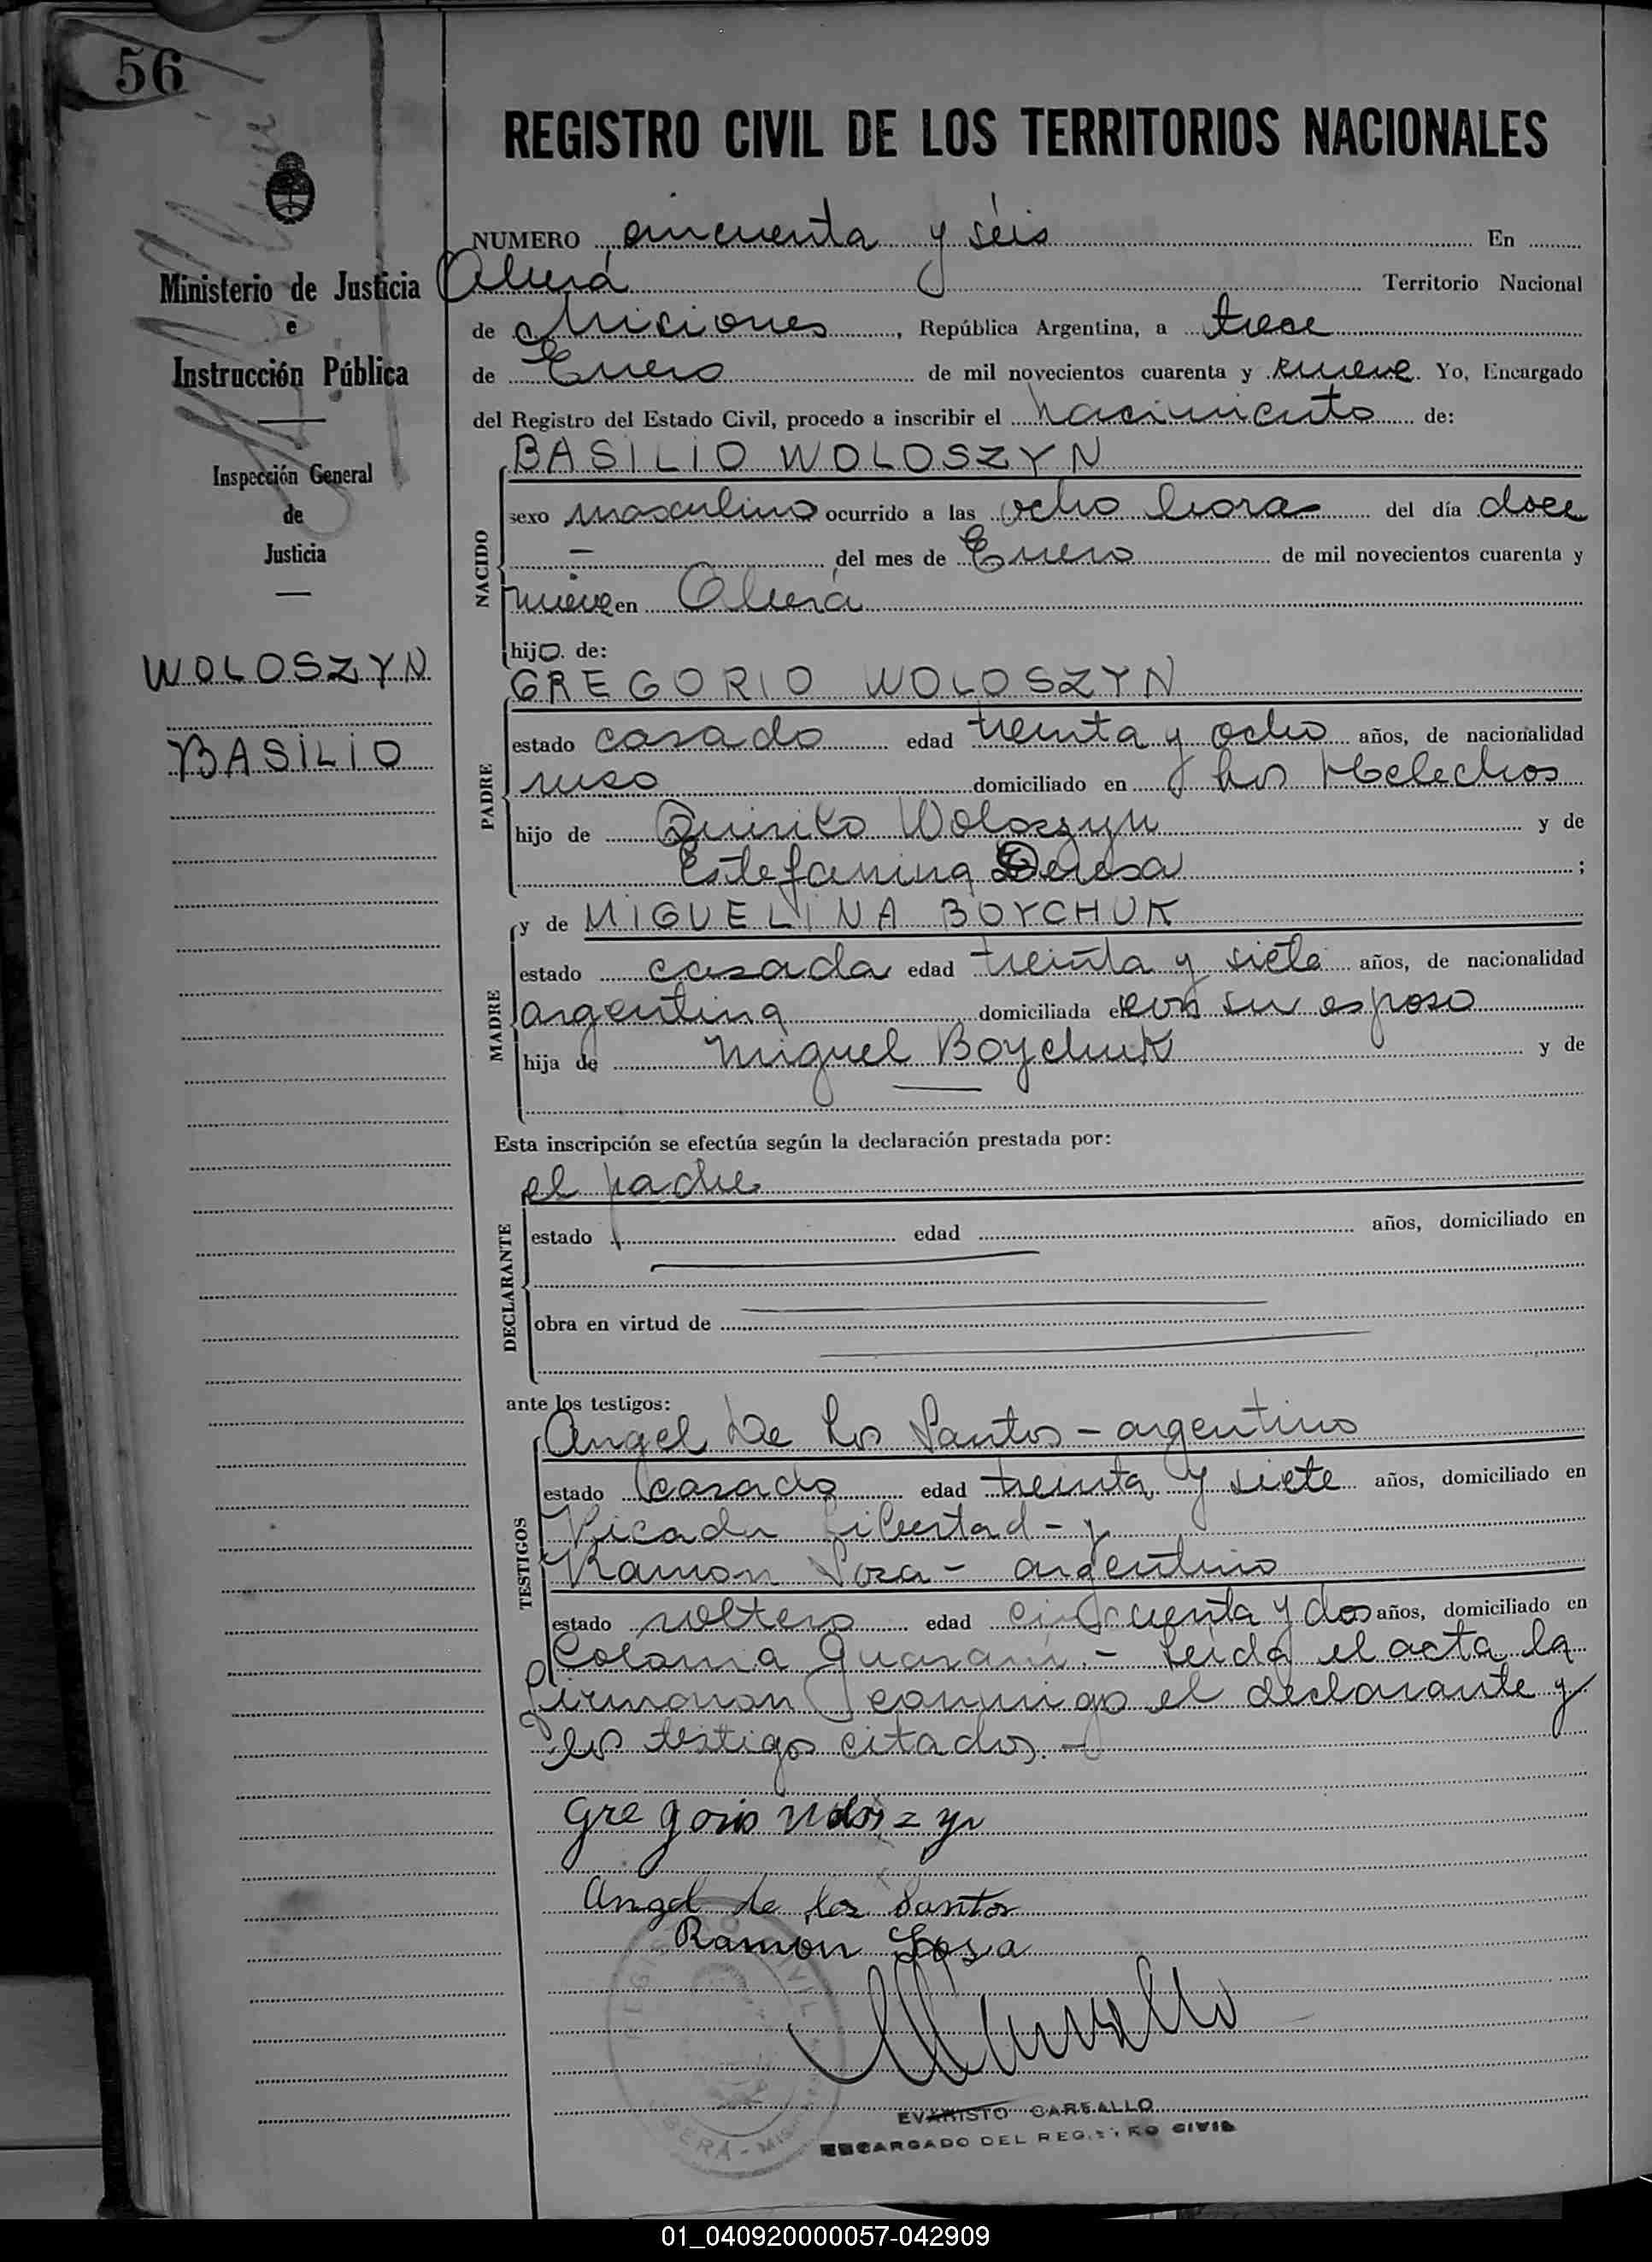 56
REGISTRO CIVIL DE LOS TERRITORIOS NACIONALES
Ministerio de Justicia
e
Instrucción Pública
Inspección General
de
Justicia
WOLOSZYN
BASILIO
NUMERO cincuenta y séis En
Oberá Territorio Nacional
de Misiones, República Argentina, a trece
de Enero de mil novecientos cuarenta y nueve. Yo, Encargado
del Registro del Estado Civil, procedo a inscribir el nacimiento de:
NACIDO
BASILIO WOLOSZYN
sexo masculino ocurrido a las ocho horas del día doce
— del mes de Enero de mil novecientos cuarenta y
nueve en Oberá
hijo de:
PADRE
GREGORIO WOLOSZYN
estado casado edad treinta y ocho años, de nacionalidad
ruso domiciliado en Los Helechos
hijo de Quirito Woloszyn y de
Estefanina ;
MADRE
y de MIGUELINA BOYCHUK
estado casada edad treinta y siete años, de nacionalidad
argentina domiciliada con su esposo
hija de Miguel Boychuk y de
Esta inscripción se efectúa según la declaración prestada por:
DECLARANTE
el padre
estado edad años, domiciliado en
obra en virtud de
ante los testigos:
TESTIGOS
Angel De Los Santos - argentino
estado casado edad treinta y siete años, domiciliado en
Picada Libertad - y
Ramon Sosa - argentino
estado soltero edad cincuenta y dos años, domiciliado en
Colonia Guaraní.- Leida el acta la
firmaron conmigo el declarante y
los testigos citados.-
Gregorio
Angel de los Santos
Ramón Sosa
EVARISTO CARBALLO
ENCARGADO DEL REGISTRO CIVIL
01_040920000057-042909